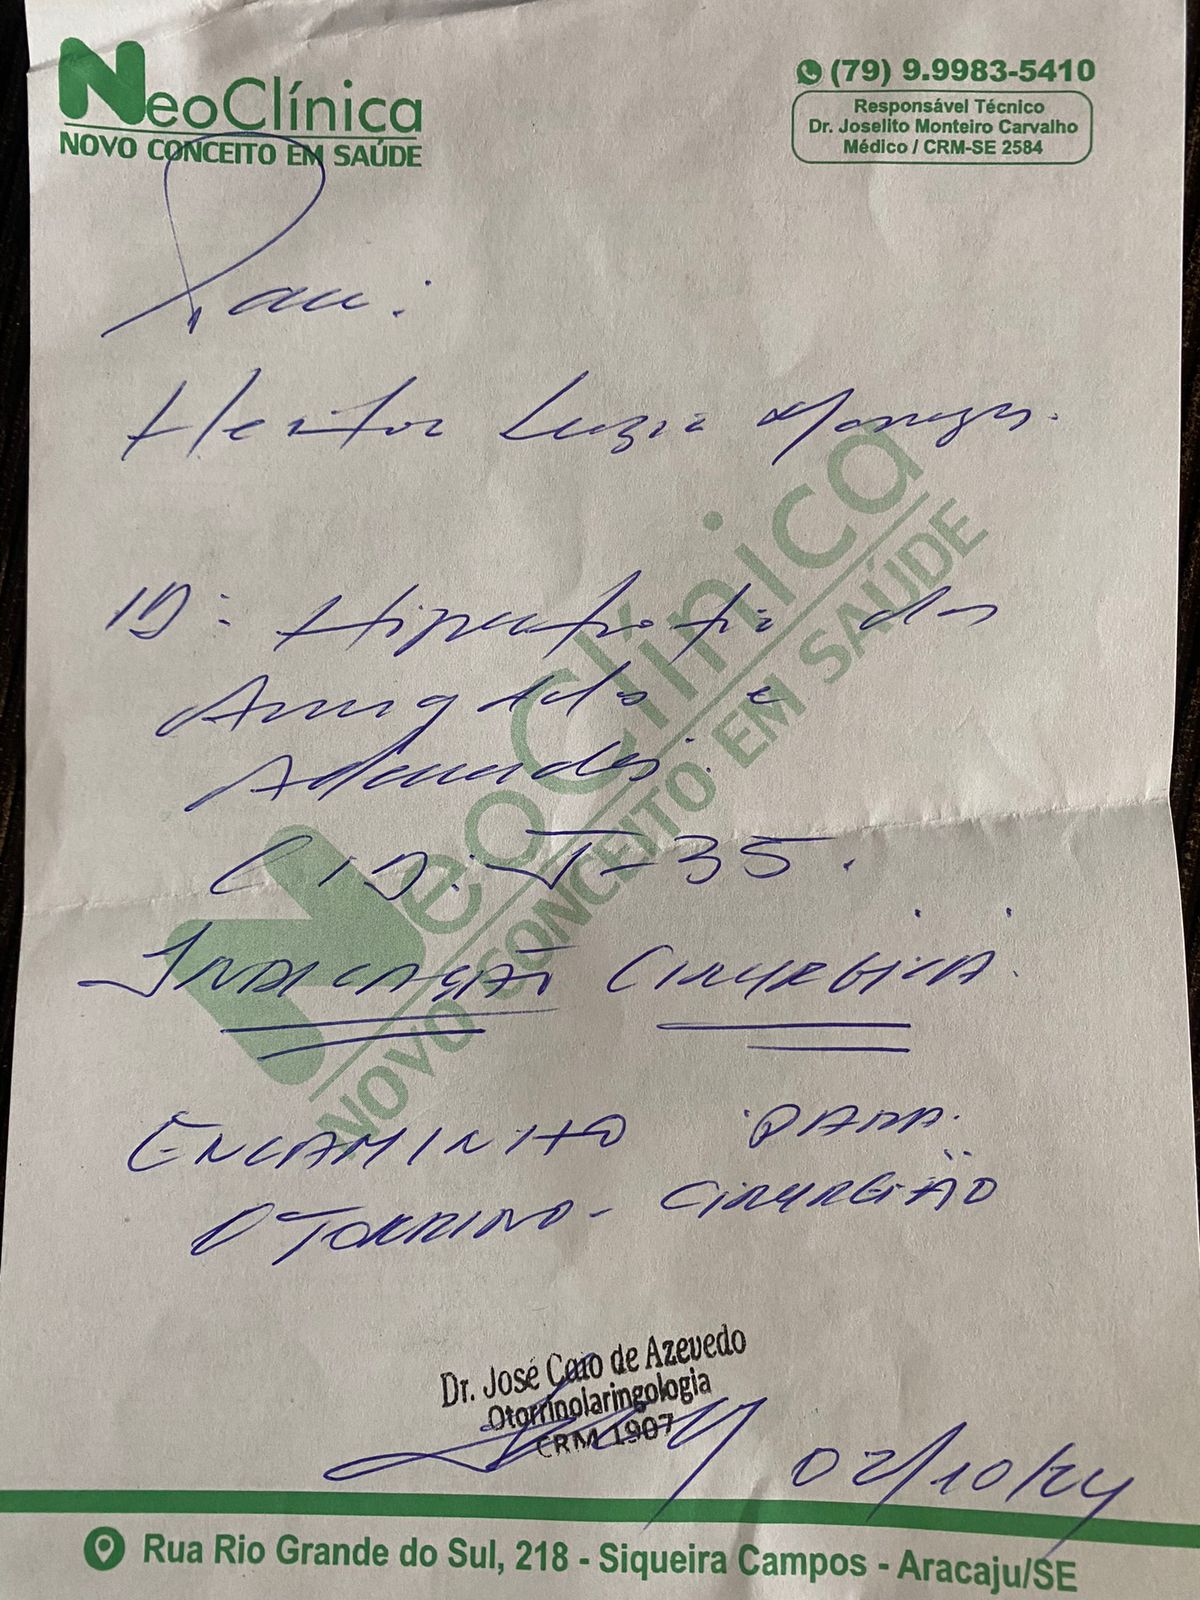 NeoClínica
NOVO CONCEITO EM SAÚDE
(79) 9.9983-5410
Responsável Técnico
Dr. Joselito Monteiro Carvalho
Médico / CRM-SE 2584
Para:
Heitor Luzia
HD: Hipertrofia das
Amigdalas e
Adenoides.
CID: J-35.
INDICAÇÃO CIRURGICA.
NeoClínica
NOVO CONCEITO EM SAÚDE
ENCAMINHO PARA
OTORRINO-CIRURGIÃO
Dr. José Caio de Azevedo
Otorrinolaringologia
CRM 1907
02/10/24
Rua Rio Grande do Sul, 218 - Siqueira Campos - Aracaju/SE